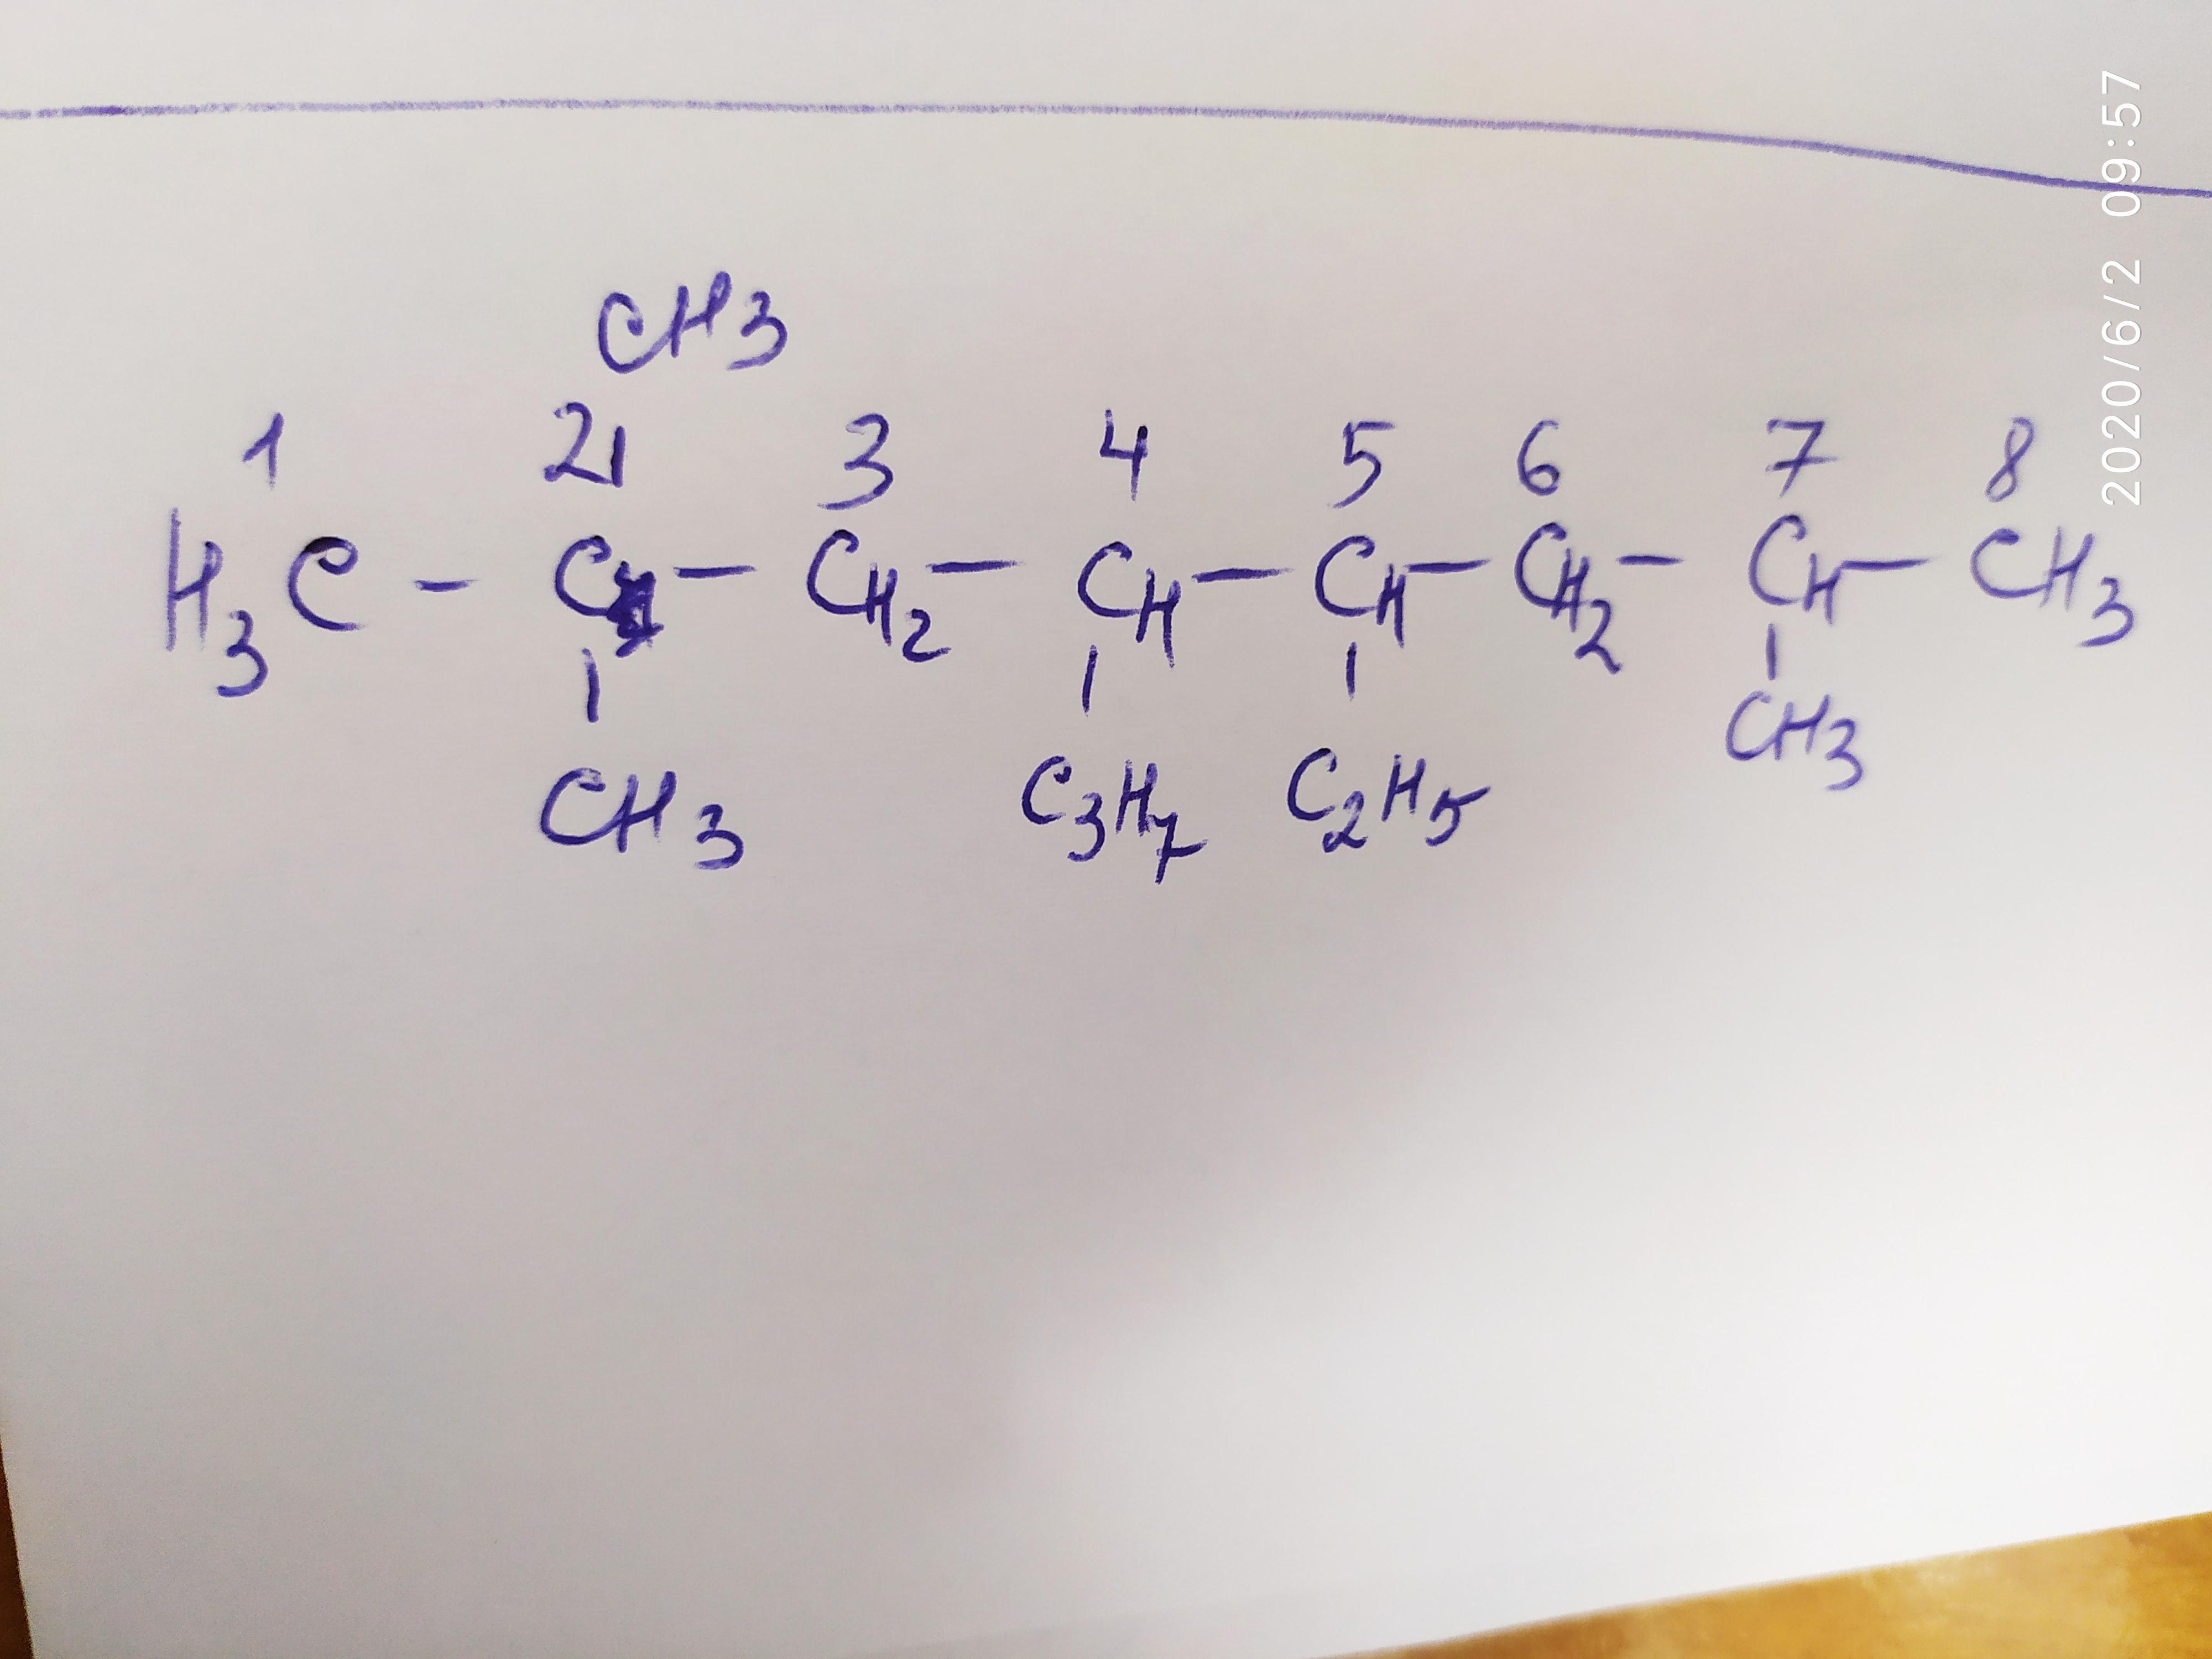 CH3
1 2 3 4 5 6 7 8
H3C - C - CH2 - CH - CH - CH2 - CH - CH3
CH3 C3H7 C2H5 CH3
2020/6/2 09:57